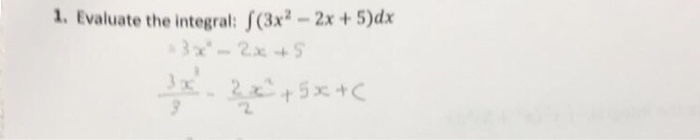 1. Evaluate the integral: ∫(3x² – 2x + 5)dx
3x² – 2x + 5
3x³/3 - 2x²/2 + 5x + C